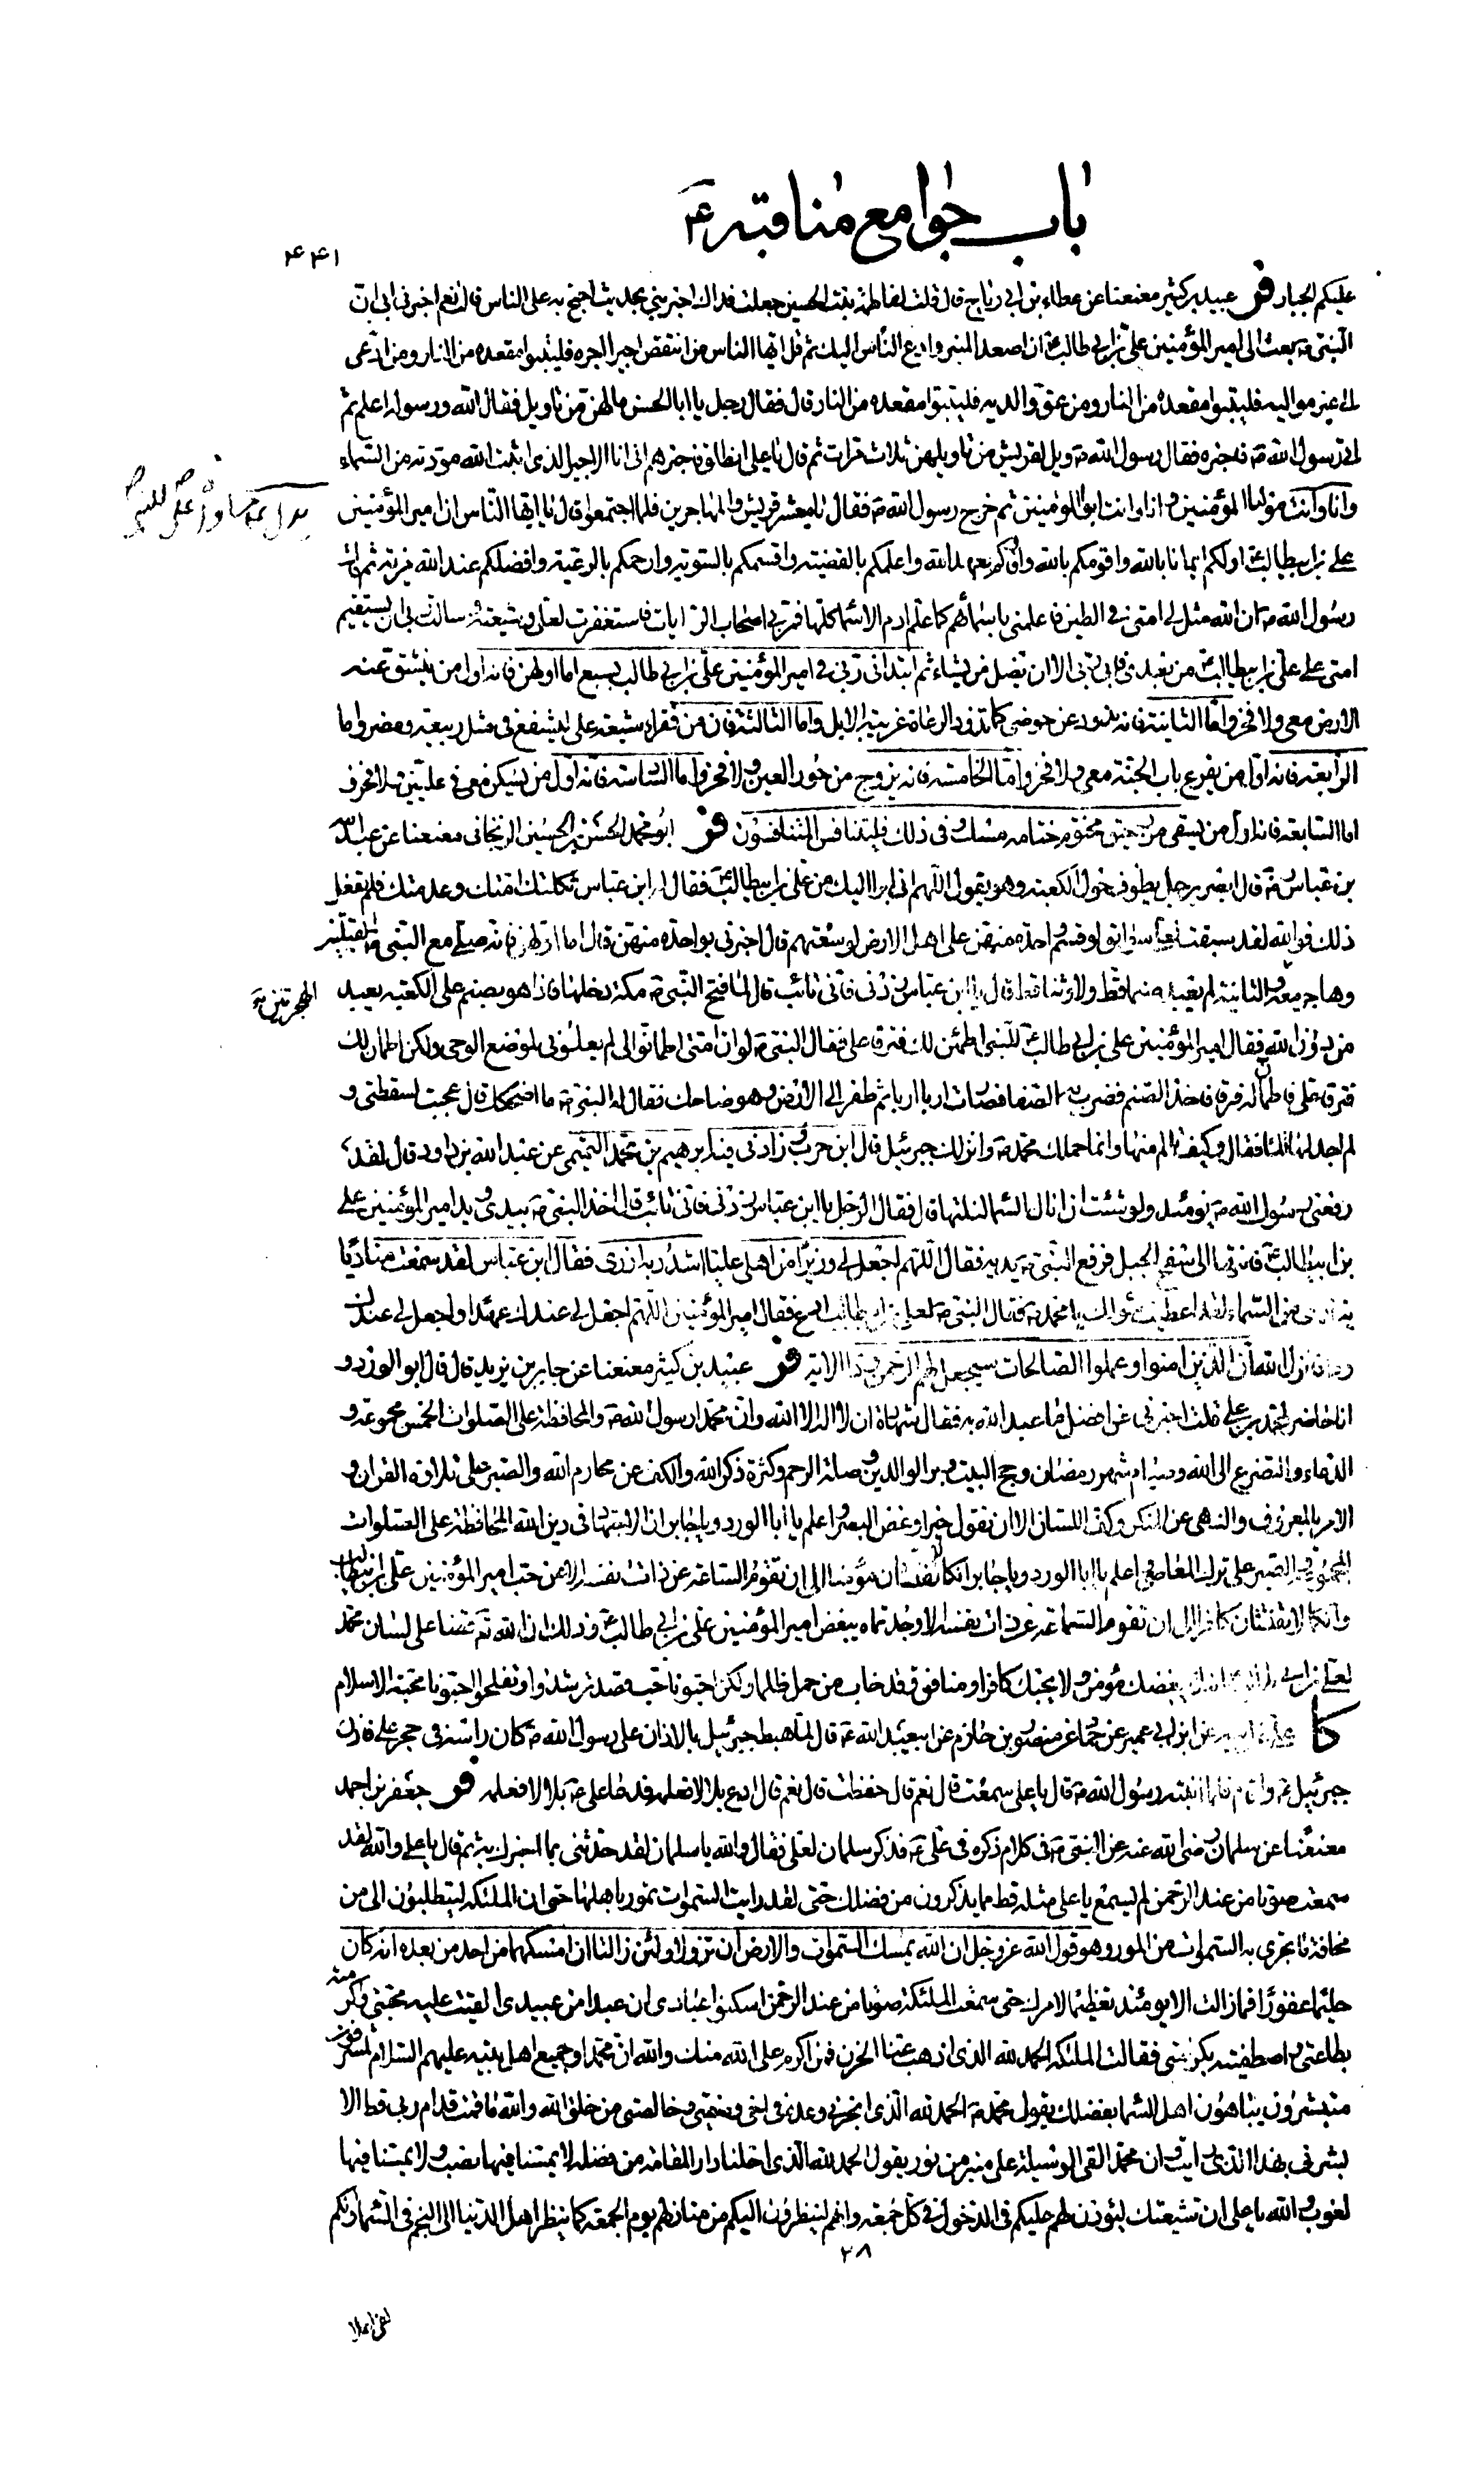 باب جوامع مناقبه ع
۴۴۱
عليكم الجبار فر عبيد بن كثير معنعنا عن عطاء بن ابي رباح قال قلت لفاطمة بنت الحسين جعلت فداك اخبريني بحديث احتج به على الناس قالت نعم اخبرني ابي ان
النبي ص بعث الى امير المؤمنين علي بن ابي طالب ع ان اصعد المنبر وادع الناس اليك ثم قل ايها الناس من انتقص اجيرا اجره فليتبوا مقعده من النار ومن ادعى
الى غير مواليه فليتبوا مقعده من النار ومن عق والديه فليتبوا مقعده من النار قال فقال رجل يا ابا الحسن ما لهن من تاويل فقال الله ورسوله اعلم ثم
اتى رسول الله ص فاخبره فقال رسول الله ص ويل لقريش من تاويلهن ثلاث مرات ثم قال يا علي انطلق فاخبرهم اني انا الاجير الذي اثبت الله مودته من السماء
وانا وانت موليا المؤمنين وانا وانت ابوا المؤمنين ثم خرج رسول الله ص فقال يا معشر قريش والمهاجرين فلما اجتمعوا قال يا ايها الناس ان امير المؤمنين
علي بن ابيطالب ع اولكم ايمانا بالله واقومكم بالله واوفاكم بعهد الله واعلمكم بالقضية واقسمكم بالسوية وارحمكم بالرعية وافضلكم عند الله مزية ثم قال
رسول الله ص ان الله مثل لي امتي في الطين فاعلمني باسمائهم كما علم ادم الاسماء كلها فمر بي اصحاب الرايات فاستغفرت لعلي وشيعته وسالت ربي ان يستقيم
امتي على علي بن ابيطالب ع من بعدي فابى ربي الا ان يضل من يشاء ثم ابتداني ربي في امير المؤمنين علي بن ابي طالب بسبع اما اولهن فانه اول من ينشق عنه
الارض معي ولا فخر واما الثانية فانه يذود عن حوضي كما تذود الرعاة غريبة الابل واما الثالثة فان من فقراء شيعة علي ليشفع في مثل ربيعة ومضر واما
الرابعة فانه اول من يقرع باب الجنة معي ولا فخر واما الخامسة فانه يزوج من حور العين ولا فخر واما السادسة فانه اول من يسكن معي في عليين ولا فخر و
اما السابعة فانه اول من يسقى من رحيق مختوم ختامه مسك وفي ذلك فليتنافس المتنافسون فر ابو محمد الحسن بن الحسين الزنجاني معنعنا عن عبد الله
بن عباس رض قال ابصر برجل يطوف حول الكعبة وهو يقول اللهم اني ابرا اليك من علي بن ابيطالب ع فقال له ابن عباس ثكلتك امك وعدمتك فلم تفعل
ذلك فوالله لقد سبقت لعلي سوابق لو قسم واحدة منهن على اهل الارض لوسعتهم قال اخبرني بواحدة منهن قال اما اولهن فانه صلى مع النبي ص القبلتين
وهاجر معه والثانية لم يعبد صنما قط ولا وثنا قط قال يا ابن عباس زدني فاني تائب قال لما فتح النبي ص مكة دخلها فاذا هو بصنم على الكعبة يعبد
الهجرتين
من دون الله فقال امير المؤمنين علي بن ابي طالب ع للنبي اطمئن لك فترقى علي فقال النبي ص لو ان امتي اطمانوا لي لم يعلوني لموضع الوحي ولكن اطمئن لك
فترقى علي فاطمان له فرقى فاخذ الصنم فضرب به الصفا فصارت اربا اربا ثم طفر الى الارض وهو ضاحك فقال له النبي ص ما اضحكك قال عجبت لسقطتي و
لم اجد لها الما فقال وكيف تالم منها وانما حملك محمد ص وانزلك جبرئيل قال ابن حرب وزادني فيه ابرهيم بن محمد التميمي عن عبد الله بن داود قال لقد
رفعني رسول الله ص يومئذ ولو شئت ان انال السماء لنلتها قال فقال الرجل يا ابن عباس زدني فاني تائب قال اخذ النبي ص بيدي ويد امير المؤمنين علي
بن ابيطالب ع فانتهى بنا الى سفح الجبل فرفع النبي ص يديه فقال اللهم اجعل لي وزيرا من اهلي عليا اشدد به ازري فقال ابن عباس لقد سمعت مناديا
ينادي من السماء لقد اعطيت سؤلك يا محمد ص فقال النبي ص لعلي بن ابي طالب ادع فقال امير المؤمنين اللهم اجعل لي عندك عهدا واجعل لي عندك
ودا فانزل الله ان الذين امنوا وعملوا الصالحات سيجعل لهم الرحمن ودا الاية فر عبيد بن كثير معنعنا عن جابر بن يزيد قال قال ابو الورد و
انا حاضر لمحمد بن علي قلت اخبرني عن افضل ما عبد الله به فقال شهادة ان لا اله الا الله وان محمدا رسول الله ص والمحافظة على الصلوات الخمس مجموعة و
الدعاء والتضرع الى الله وصيام شهر رمضان وحج البيت وبر الوالدين وصلة الرحم وكثرة ذكر الله والكف عن محارم الله والصبر على تلاوة القران و
الامر بالمعروف والنهي عن المنكر وكف اللسان الا ان تقول خيرا وغض البصر واعلم يا ابا الورد ويا جابر ان الاجتهاد في دين الله المحافظة على الصلوات
المجموعة والصبر على ترك المعاصي واعلم يا ابا الورد ويا جابر انكما لا تفتشان مؤمنا الى ان تقوم الساعة عن ذات نفسه الا عن حب امير المؤمنين علي بن ابيطالب
وانكما لا تفتشان كافرا الى ان تقوم الساعة عن ذات نفسه الا وجدتماه يبغض امير المؤمنين علي بن ابي طالب ع وذلك ان الله تع قضا على لسان محمد
لعلي بن ابي طالب يبغضك مؤمن ولا يحبك كافر او منافق وقد خاب من حمل ظلما ولكن احبونا حب قصد ترشدوا وتفلحوا احبونا محبة الاسلام
كا علي عن ابيه عن ابن ابي عمير عن حماد عن منصور بن حازم عن ابيعبد الله ع قال لما هبط جبرئيل بالاذان على رسول الله ص كان راسه في حجر علي فاذن
جبرئيل ع واقام فلما انتبه رسول الله ص قال يا علي سمعت قال نعم قال حفظت قال نعم قال ادع بلالا فعلمه فدعا علي ع بلالا فعلمه فر جعفر بن احمد
معنعنا عن سلمان رضي الله عنه عن النبي ص في كلام ذكره في علي ع فذكر سلمان لعلي فقال والله يا سلمان لقد حدثني بما اخبرك به ثم قال يا علي والله لقد
سمعت صوتا من عند الرحمن لم يسمع يا علي مثله قط مما يذكرون من فضلك حتى لقد رايت السموات تمور باهلها حتى ان الملئكة ليتطلبون الي من
مخافة ما تجري به السموات من المور وهو قول الله عز وجل ان الله يمسك السموات والارض ان تزولا ولئن زالتا ان امسكهما من احد من بعده انه كان
حليما غفورا فما زالت الا يومئذ تعظيما لامرك حتى سمعت الملئكة صوتا من عند الرحمن اسكنوا عبادي ان عبدا من عبيدي القيت عليه محبتي واكرمته
بطاعتي واصطفيته بكرامتي فقالت الملئكة الحمد لله الذي اذهب عنا الحزن فمن اكرم على الله منك والله ان محمدا وجميع اهل بيته عليهم السلام لمشرفون
متبشرون يتباهون اهل السماء بفضلك يقول محمد ص الحمد لله الذي انجز لي وعده في اخي وصفيي وخالصتي من خلق الله والله ما قمت قدام ربي قط الا
بشرني بهذا الذي رايت وان محمدا لفي الوسيلة على منبر من نور يقول الحمد لله الذي احلنا دار المقامة من فضله لا يمسنا فيها نصب ولا يمسنا فيها
لغوب والله يا علي ان شيعتك ليؤذن لهم عليكم في الدخول في كل جمعة وانهم لينظرون اليكم من منازلهم يوم الجمعة كما ينظر اهل الدنيا الى النجم في السماء وانكم
۲۸
لفي اعلا